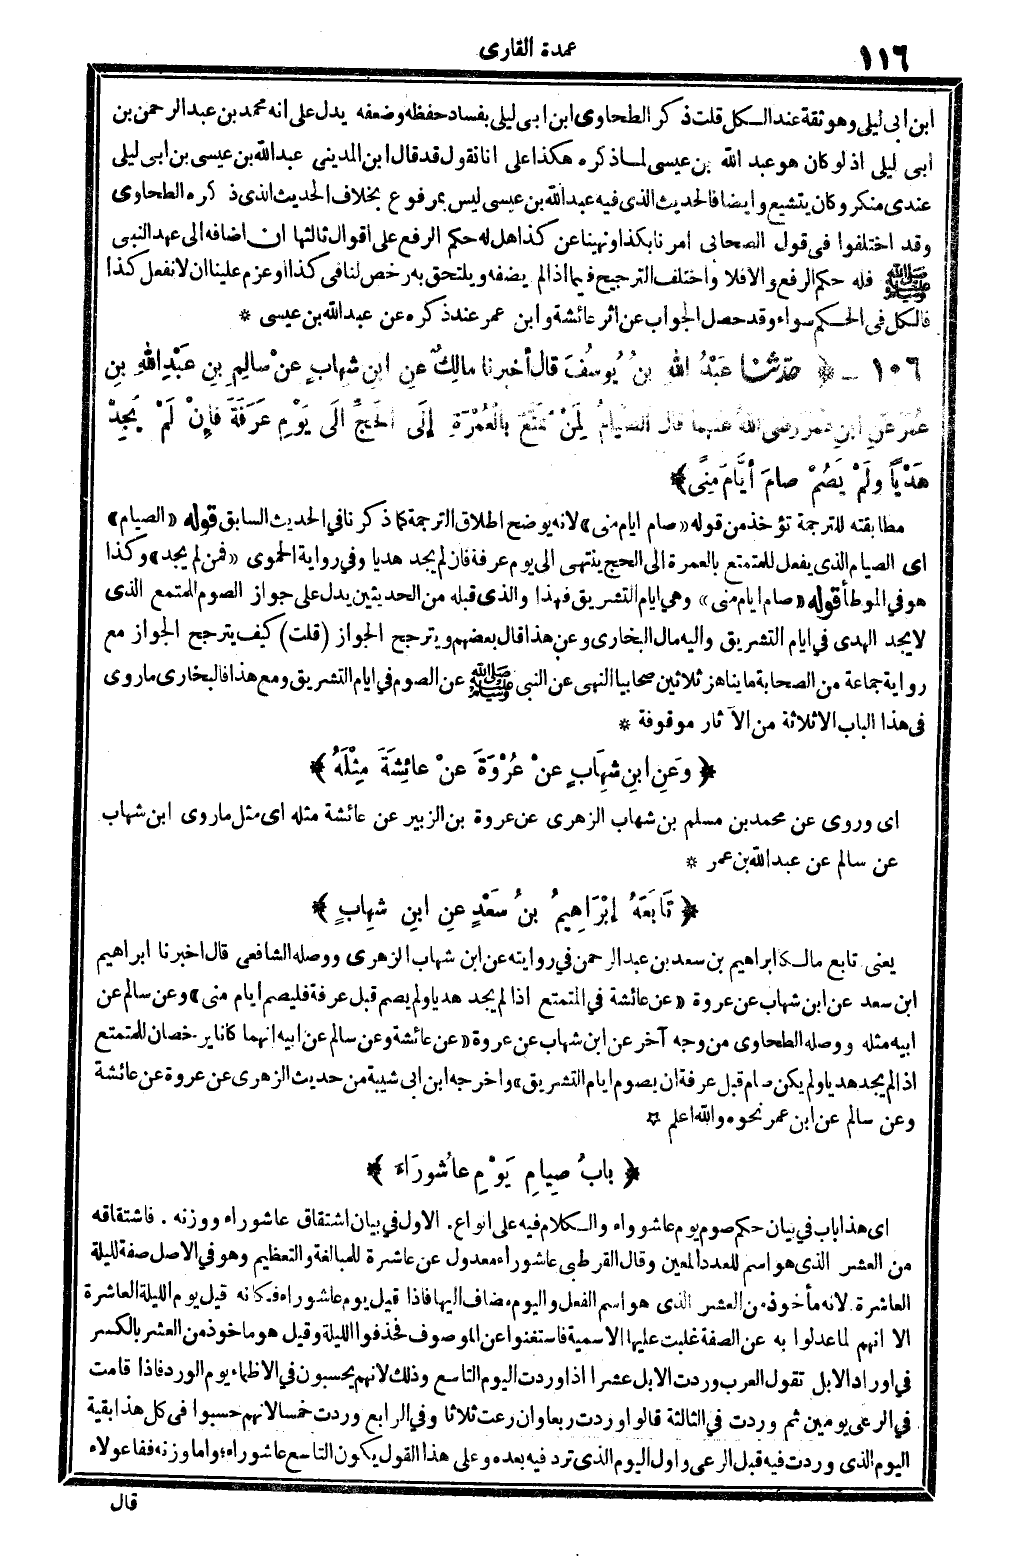 ١١٦
عمدة القارى
ابن ابى ليلى وهو ثقة عند الكل قلت ذكر الطحاوى ابن ابى ليلى بفساد حفظه وضعفه يدل على انه محمد بن عبد الرحمن بن
ابى ليلى اذ لو كان هو عبد الله بن عيسى لما ذكره هكذا على انا نقول قد قال ابن المدينى عبد الله بن عيسى بن ابى ليلى
عندى منكر وكان يتشيع وايضا فالحديث الذى فيه عبد الله بن عيسى ليس بمرفوع بخلاف الحديث الذى ذكره الطحاوى
وقد اختلفوا فى قول الصحابى امرنا بكذا ونهينا عن كذا هل له حكم الرفع على اقوال ثالثها ان اضافه الى عهد النبى
ﷺ فله حكم الرفع والا فلا واختلف الترجيح فيما اذا لم يضفه ويلتحق به رخص لنا فى كذا او عزم علينا ان لا نفعل كذا
فالكل فى الحكم سواء وقد حصل الجواب عن اثر عائشة وابن عمر عند ذكره عن عبد الله بن عيسى *
١٠٦ ــ ﴿ حَدَّثَنَا عَبْدُ اللهِ بنُ يُوسُفَ قال أخبرنا مالِكٌ عنِ ابنِ شِهابٍ عنْ سالِمِ بنِ عَبْدِ اللهِ بنِ
عُمَرَ عَنِ ابنِ عُمَرَ رضى اللهُ عنهما قال الصِّيامُ لِمَنْ تَمَتَّعَ بِالْعُمْرَةِ إلَى الحَجِّ الَى يَوْمِ عَرَفَةَ فإِنْ لَمْ يَجِدْ
هَدْيًا ولَمْ يَصُمْ صامَ أيَّامَ مِنًى ﴾
مطابقته للترجمة تؤخذ من قوله «صام ايام منى» لانه يوضح اطلاق الترجمة كما ذكرنا فى الحديث السابق قوله «الصيام»
اى الصيام الذى يفعل للمتمتع بالعمرة الى الحج ينتهى الى يوم عرفة فان لم يجد هديا وفى رواية الحموى «فمن لم يجد» وكذا
هو فى الموطأ قوله «صام ايام منى» وهى ايام التشريق فهذا والذى قبله من الحديثين يدل على جواز الصوم للمتمتع الذى
لا يجد الهدى فى ايام التشريق واليه مال البخارى وعن هذا قال بعضهم ويترجح الجواز (قلت) كيف يترجح الجواز مع
رواية جماعة من الصحابة ما يناهز ثلاثين صحابيا النهى عن النبى ﷺ عن الصوم فى ايام التشريق ومع هذا فالبخارى ما روى
فى هذا الباب الا ثلاثة من الآثار موقوفة *
﴿ وعَنِ ابنِ شِهَابٍ عنْ عُرْوَةَ عنْ عائِشَةَ مِثْلَهُ ﴾
اى وروى عن محمد بن مسلم بن شهاب الزهرى عن عروة بن الزبير عن عائشة مثله اى مثل ما روى ابن شهاب
عن سالم عن عبد الله بن عمر *
﴿ تَابَعَهُ إبْرَاهِيمُ بنُ سَعْدٍ عنِ ابنِ شِهابٍ ﴾
يعنى تابع مالكا ابراهيم بن سعد بن عبد الرحمن فى روايته عن ابن شهاب الزهرى ووصله الشافعى قال اخبرنا ابراهيم
ابن سعد عن ابن شهاب عن عروة «عن عائشة فى المتمتع اذا لم يجد هديا ولم يصم قبل عرفة فليصم ايام منى» وعن سالم عن
ابيه مثله ووصله الطحاوى من وجه آخر عن ابن شهاب عن عروة «عن عائشة وعن سالم عن ابيه انهما كانا يرخصان للمتمتع
اذا لم يجد هديا ولم يكن صام قبل عرفة ان يصوم ايام التشريق» واخرجه ابن ابى شيبة من حديث الزهرى عن عروة عن عائشة
وعن سالم عن ابن عمر نحوه والله اعلم *
﴿ بابُ صِيامِ يَوْمِ عاشُورَاءَ ﴾
اى هذا باب فى بيان حكم صوم يوم عاشوراء والكلام فيه على انواع. الاول فى بيان اشتقاق عاشوراء ووزنه . فاشتقاقه
من العشر الذى هو اسم للعدد المعين وقال القرطبى عاشوراء معدول عن عاشرة للمبالغة والتعظيم وهو فى الاصل صفة لليلة
العاشرة لانه مأخوذ من العشر الذى هو اسم الفعل واليوم مضاف اليها فاذا قيل يوم عاشوراء فكانه قيل يوم الليلة العاشرة
الا انهم لما عدلوا به عن الصفة غلبت عليها الاسمية فاستغنوا عن الموصوف فحذفوا الليلة وقيل هو ماخوذ من العشر بالكسر
فى اوراد الابل تقول العرب وردت الابل عشرا اذا وردت اليوم التاسع وذلك لانهم يحسبون فى الاظماء يوم الورد فاذا قامت
فى الرعى يومين ثم وردت فى الثالثة قالوا وردت ربعا وان رعت ثلاثا وفى الرابع وردت خمسا لانهم حسبوا فى كل هذا بقية
اليوم الذى وردت فيه قبل الرعى واول اليوم الذى ترد فيه بعده وعلى هذا القول يكون التاسع عاشوراء؛ واما وزنه ففاعولاء
قال